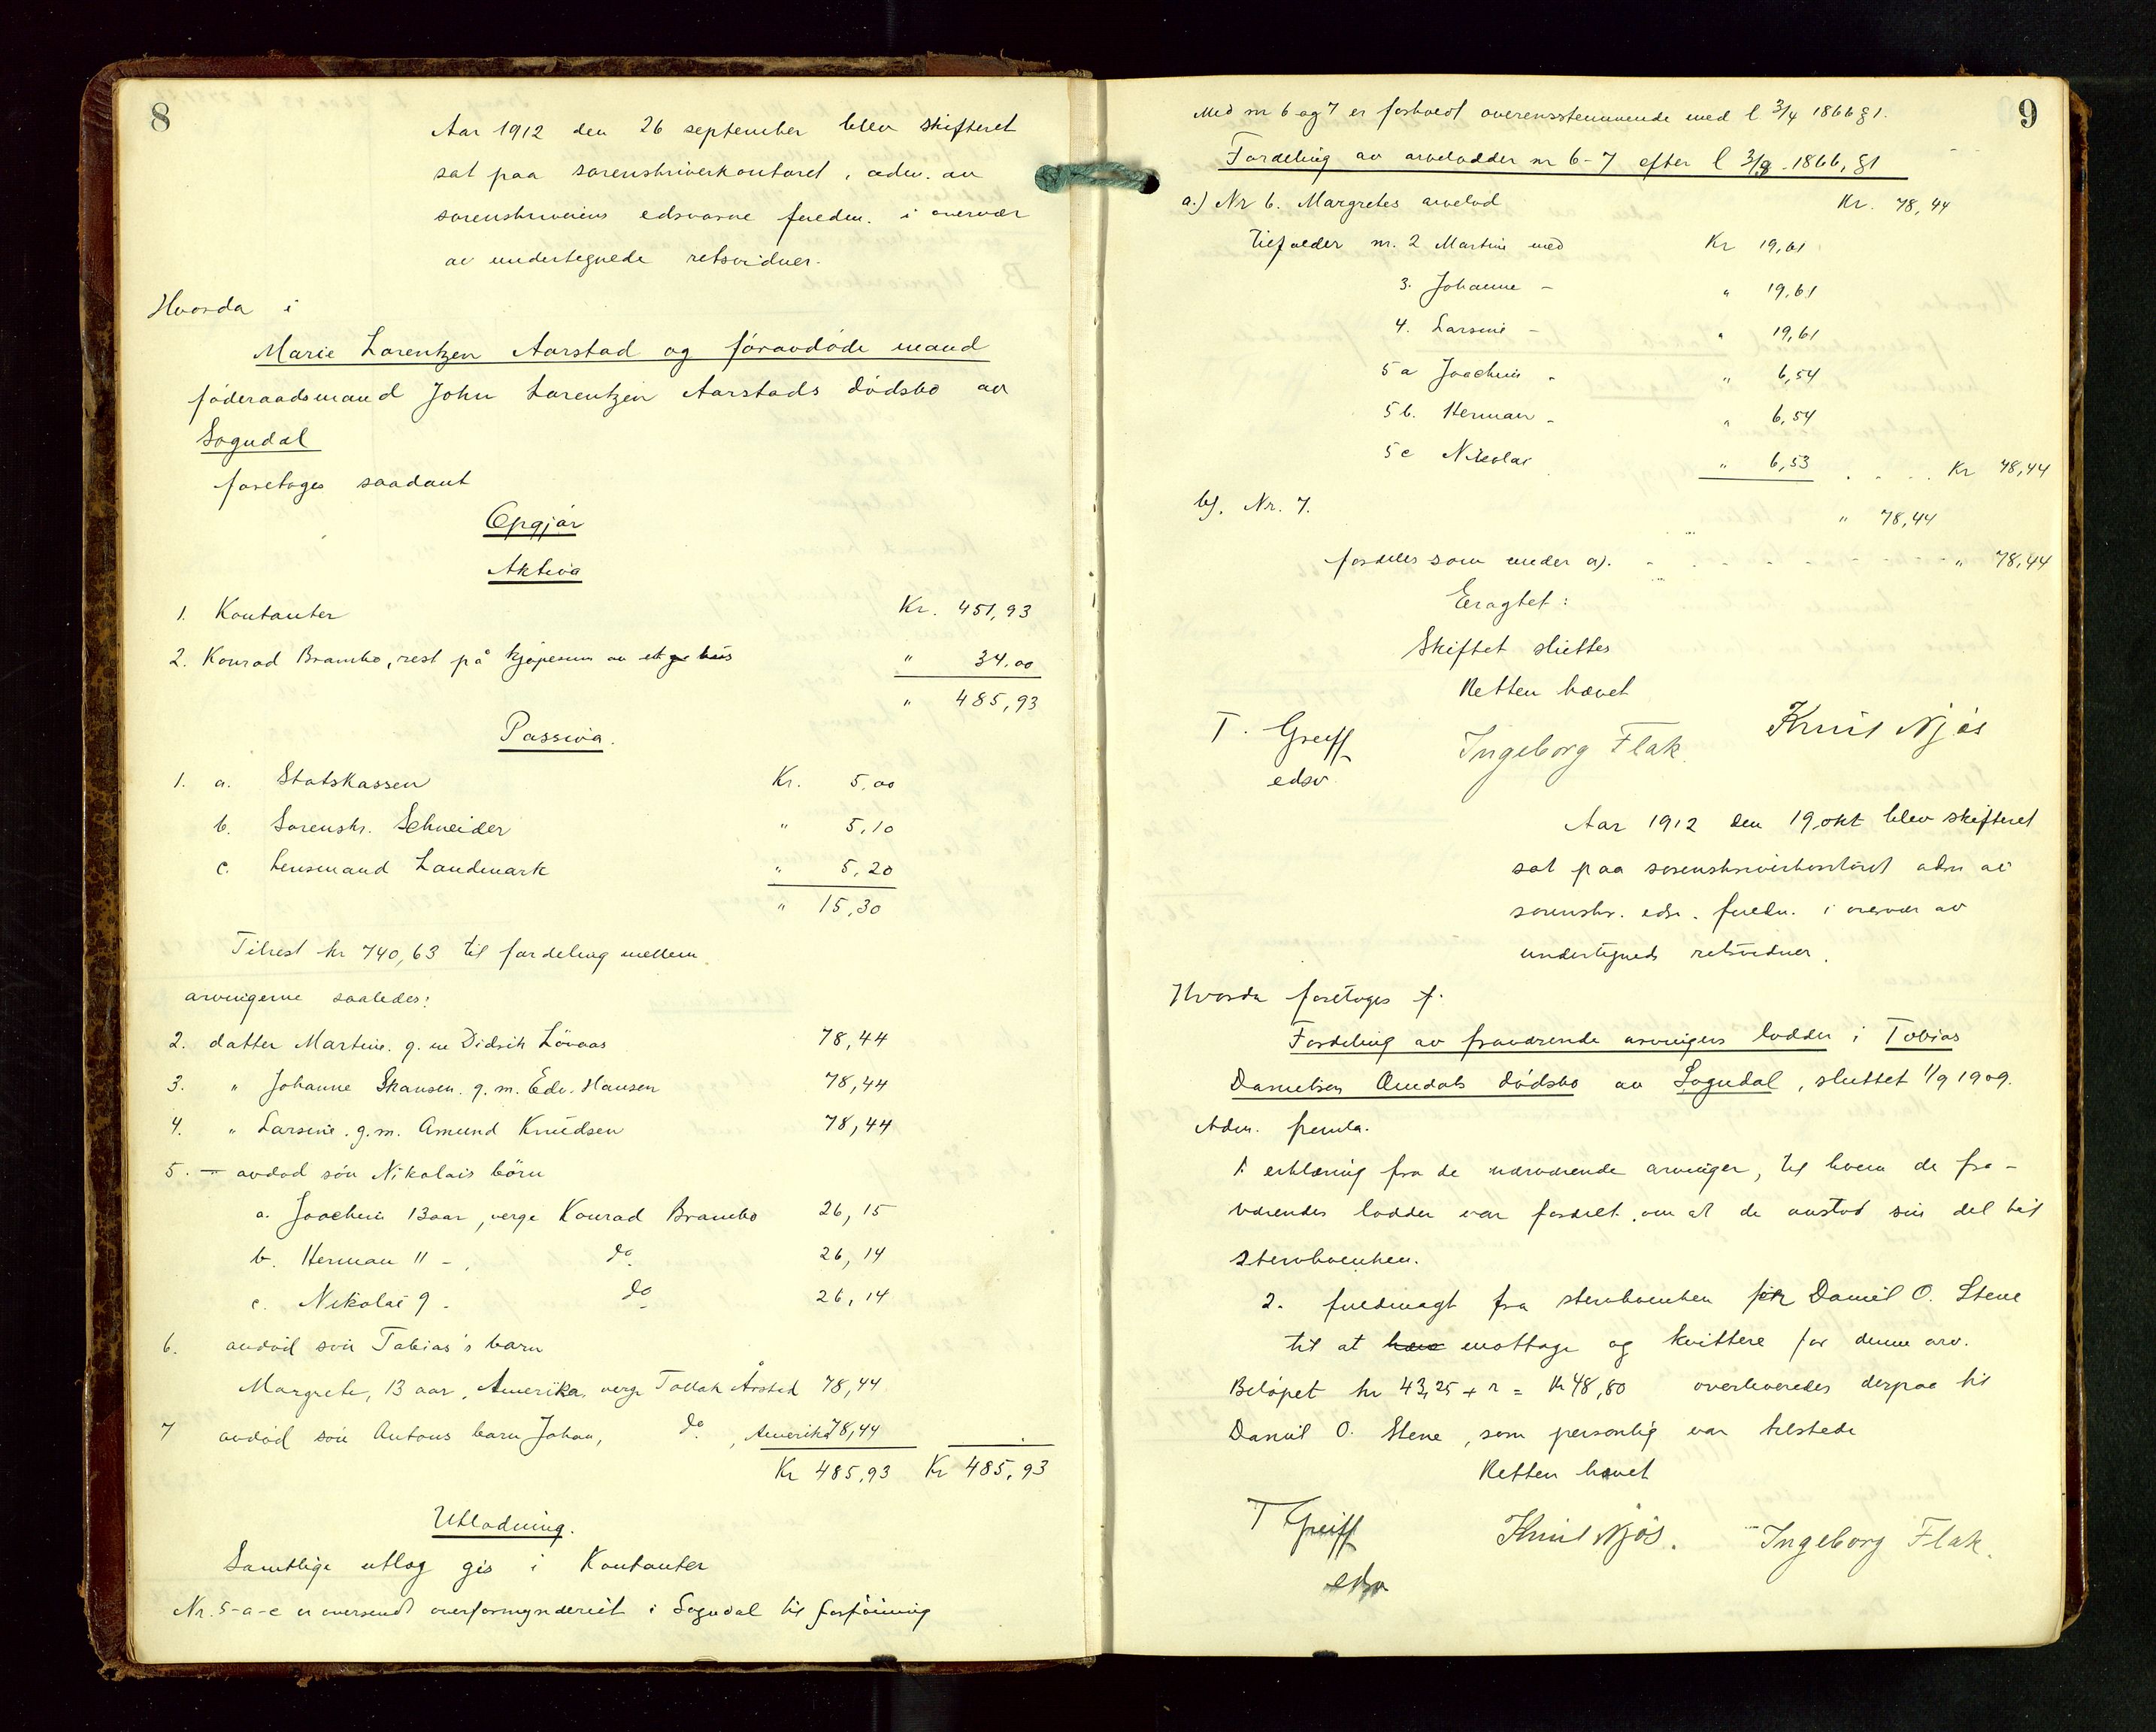 8
Aar 1912 den 26 september blev skifteret
sat paa sorenskriverkontoret, adm. av
sorenskriverens edsvorne fuldm. i overvær
av undertegnede retsvidner.
Hvorda i
Marie Lorentzen Aarstad og föravdöde mand
föderaadsmand John Lorentzen Aarstads dödsbo av
Sogndal
foretoges saadant
Opgjör
Aktiva
1. Kontanter Kr. 451,93
2. Konrad Brambo, rest på kjøpesum av et hus " 34.00
" 485,93
Passiva.
1. a. Statskassen Kr. 5,00
b. Sorenskr. Schneider " 5,10
c. Lensmand Landmark " 5,20
" 15,30
Tilrest kr 740,63 til fordeling mellem
arvingerne saaledes:
2. datter Martine. g. m Didrik Lövaas 78,44
3. " Johanne Skansen. g. m. Edv. Hansen 78,44
4. " Larsine. g. m. Amund Knudsen 78,44
5. – avdöd sön Nikolais börn
a. Joachim 13 aar, verge Konrad Brambo 26,15
b. Herman 11 – do 26,14
c. Nikolai 9 - do 26,14
6. avdöd sön Tobias's barn
Margrete, 13 aar, Amerika, verge Tollak Årstad 78,44
7 avdöd sön Antons barn Johan, do, Amerika 78,44
Kr 485,93 Kr 485,93
Utlodning.
Samtlige utlæg gis i Kontanter
Nr. 5-a-c er oversendt overformynderiet i Sogndal til forföining
9
Med nr 6 og 7 er forholdt overensstemmende med l 3/4 1866 § 1.
Fordeling av arvelodder nr 6-7 efter l 3/4 1866, § 1
a.) Nr 6. Margretes arvelod Kr. 78,44
tilfalder nr. 2 Martine med Kr 19,61
3. Johanne – " 19,61
4. Larsine – " 19,61
5 a Joachim - " 6,54
5 b. Herman - " 6,54
5 c Nikolai " 6,53 . . . . Kr 78,44
b). Nr. 7. " 78,44
fordeles som under a). - - - - - " 78,44
Eragtet:
Skiftet sluttes
Retten hævet
T. Greiff
edsv.
Ingeborg Flak.
Knut Njös
Aar 1912 den 19 okt blev skifteret
sat paa sorenskriverkontoret adm av
sorenskr. edsv. fuldm. i overvær av
undertegnede retsvidner.
Hvorda foretoges f.
Fordeling av fraværende arvingers lodder i Tobias
Danielsen Omdals dödsbo av Sogndal, sluttet 1/9 1909.
Adm. freml.
1. erklæring fra de nærværende arvinger, til hvem de fra-
værendes lodder var fordelt, om at de avstod sin del til
stervboenken.
2. fuldmagt fra stervboenken for Daniel O. Stene
til at motta­ge og kvittere for denne arv.
Belöpet kr 43,25 + r = kr 48,80 overleveredes derpaa til
Daniel O. Stene, som personlig var tilstede
Retten hævet
T Greiff
edsv
Knut Njös.
Ingeborg Flak.